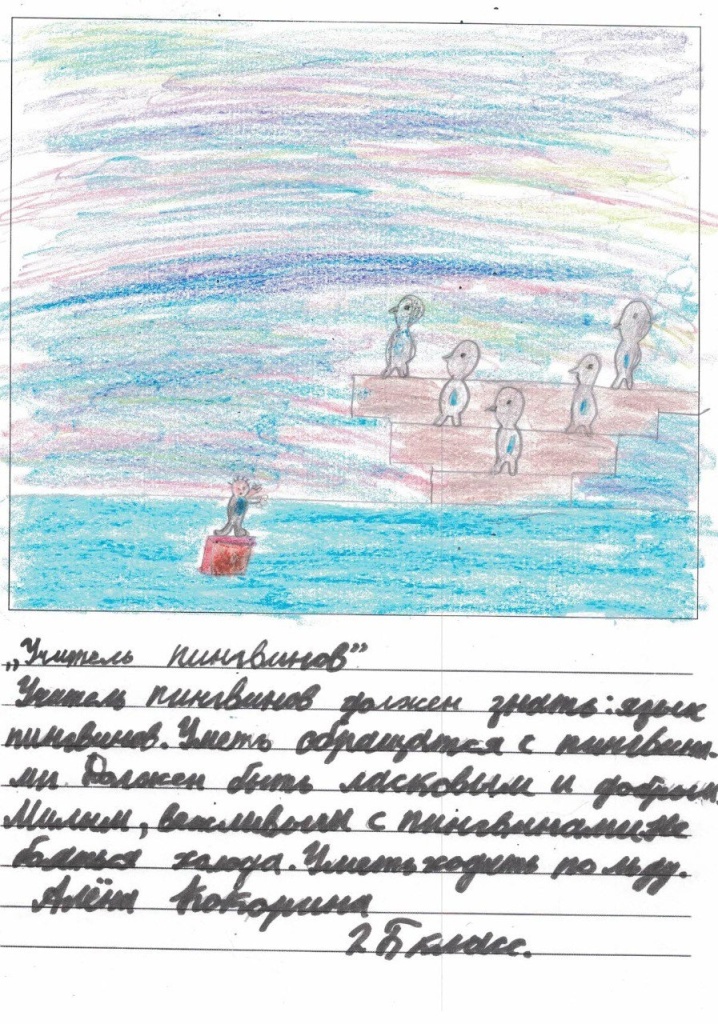 „Учитель пингвинов”
Учитель пингвинов должен знать: язык
пингвинов. Уметь обращатся с пингвина-
ми. Должен быть ласковым и добрым
Милым, вежливым с пингвинами, не
боятся холода. Уметь ходить по льду.
Алёна Кокорина
2 Б класс.